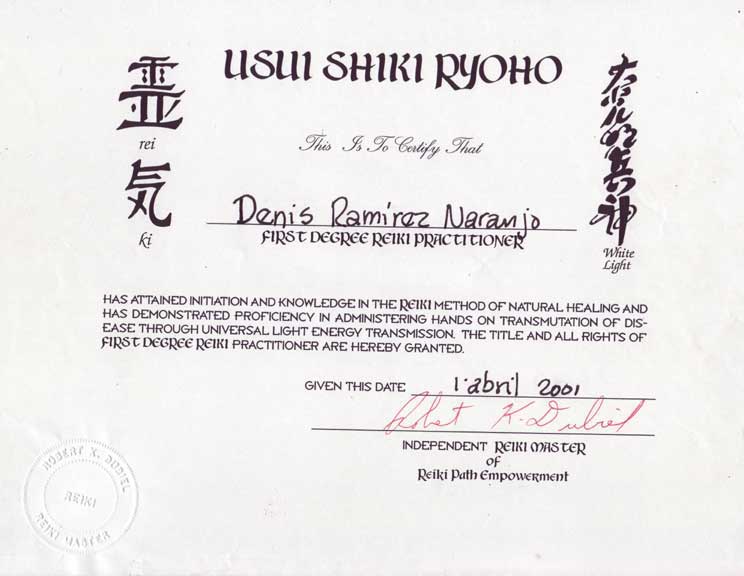 USUI SHIKI RYOHO
霊
rei
気
ki
神
White
Light
This Is To Certify That
Denis Ramírez Naranjo
FIRST DEGREE REIKI PRACTITIONER
HAS ATTAINED INITIATION AND KNOWLEDGE IN THE REIKI METHOD OF NATURAL HEALING AND
HAS DEMONSTRATED PROFICIENCY IN ADMINISTERING HANDS ON TRANSMUTATION OF DIS-
EASE THROUGH UNIVERSAL LIGHT ENERGY TRANSMISSION. THE TITLE AND ALL RIGHTS OF
FIRST DEGREE REIKI PRACTITIONER ARE HEREBY GRANTED.
GIVEN THIS DATE 1·abril 2001
Robert K. Dubiel
INDEPENDENT REIKI MASTER
OF
REIKI PATH EMPOWERMENT
ROBERT K. DUBIEL
REIKI
REIKI MASTER